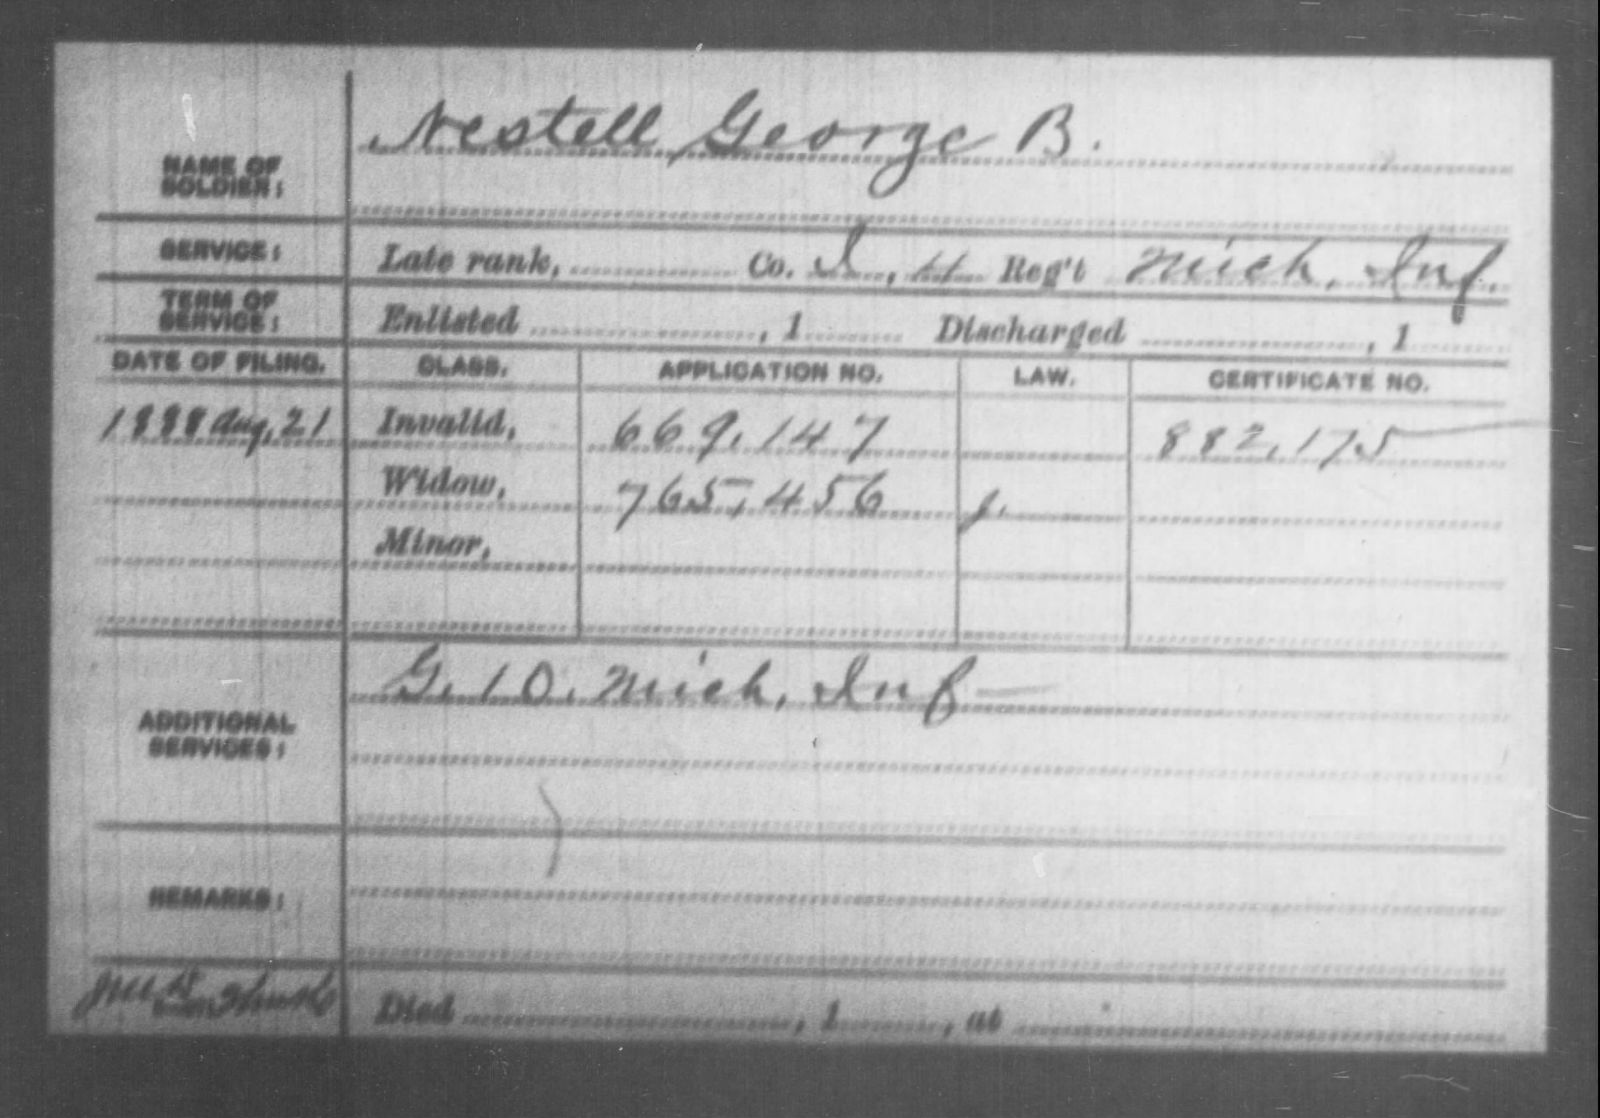 NAME OF SOLDIER: Nestell George B.
SERVICE: Late rank, Co. I, 4 Reg't Mich. Inf.
TERM OF SERVICE: Enlisted , 1 Discharged , 1
DATE OF FILING. CLASS. APPLICATION NO. LAW. CERTIFICATE NO.
1888 Aug, 21 Invalid, 669,147 882,175
Widow, 765,456 J.
Minor,
ADDITIONAL SERVICES: G. 10. Mich, Inf
REMARKS:
Died , 1 , at